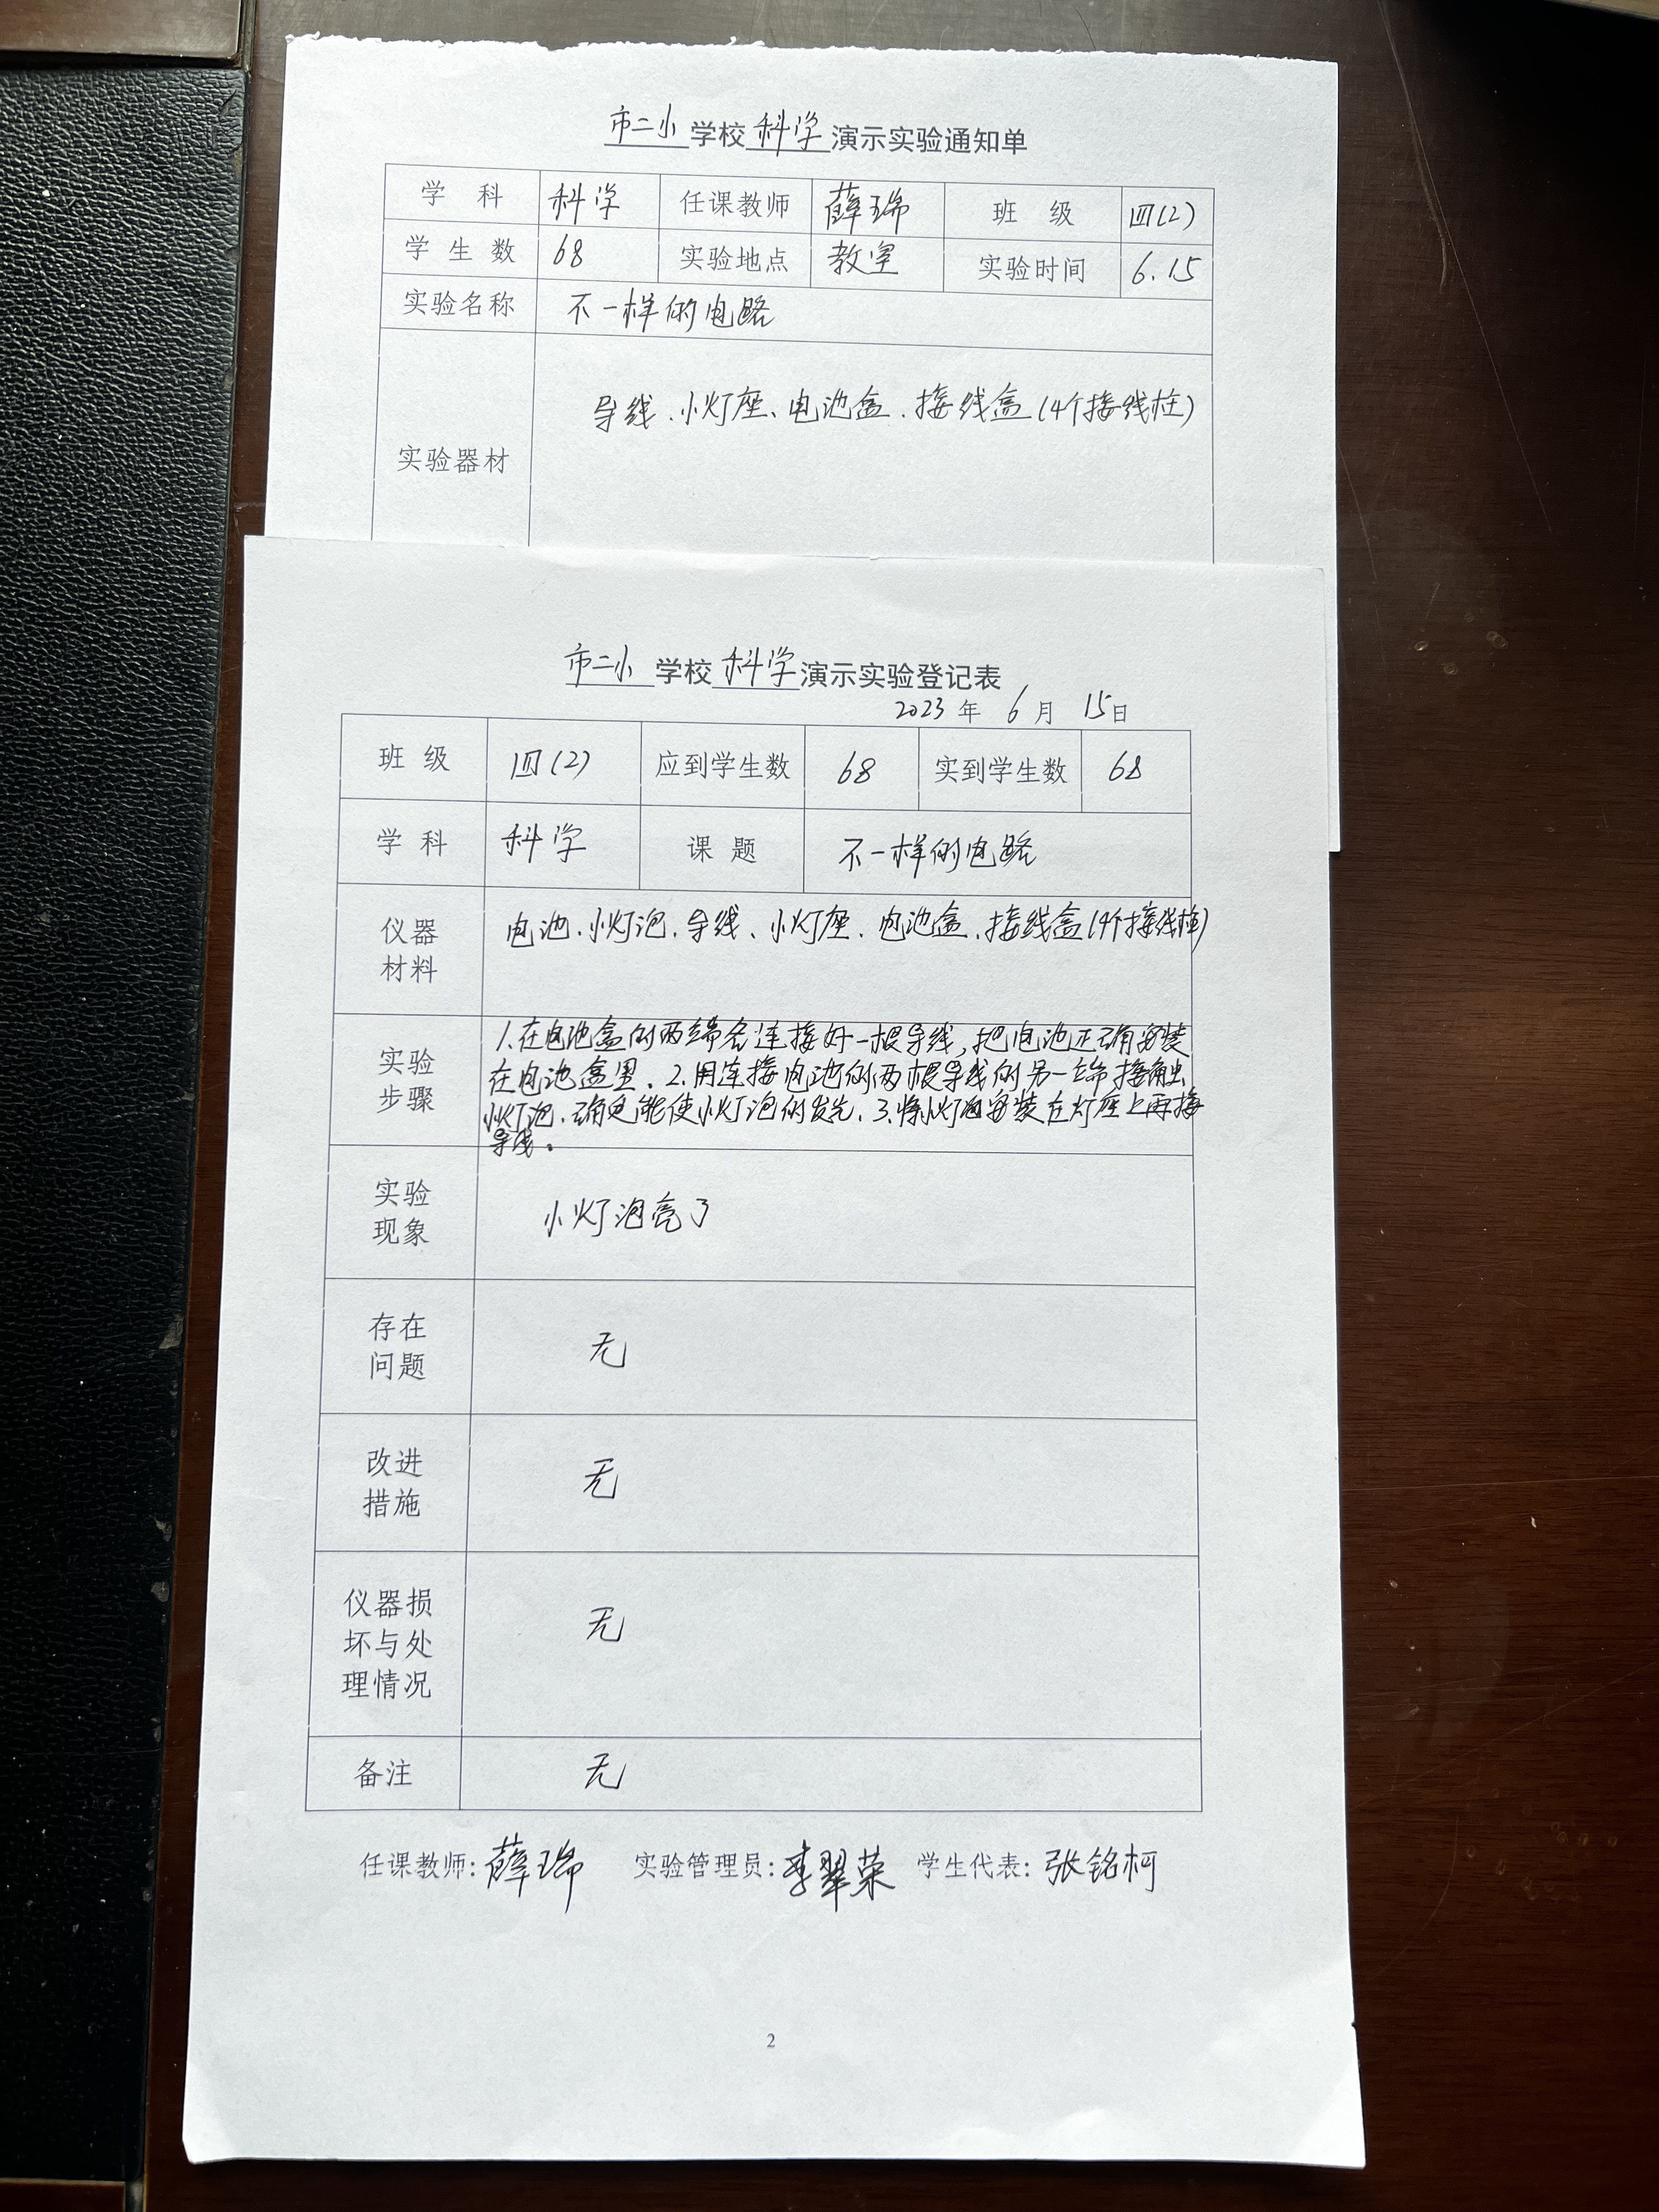 市二小学校科学演示实验通知单
学 科 科学 任课教师 薛瑞 班 级 四(2)
学 生 数 68 实验地点 教室 实验时间 6.15
实验名称 不一样的电路
导线、小灯座、电池盒、接线盒(4个接线柱)
实验器材
市二小学校科学演示实验登记表
2023年6月15日
班 级 四(2) 应到学生数 68 实到学生数 68
学 科 科学 课 题 不一样的电路
仪器
材料
电池、小灯泡、导线、小灯座、电池盒、接线盒(4个接线柱)
实验
步骤
1.在电池盒的两端各连接好一根导线,把电池正确安装
在电池盒里、2.用连接电池的两根导线的另一端接触
小灯泡、确定能使小灯泡的发光、3.将小灯泡安装在灯座上再接
导线。
实验
现象
小灯泡亮了
存在
问题
无
改进
措施
无
仪器损
坏与处
理情况
无
备注 无
任课教师:薛瑞 实验管理员:李翠荣 学生代表:张铭柯
2